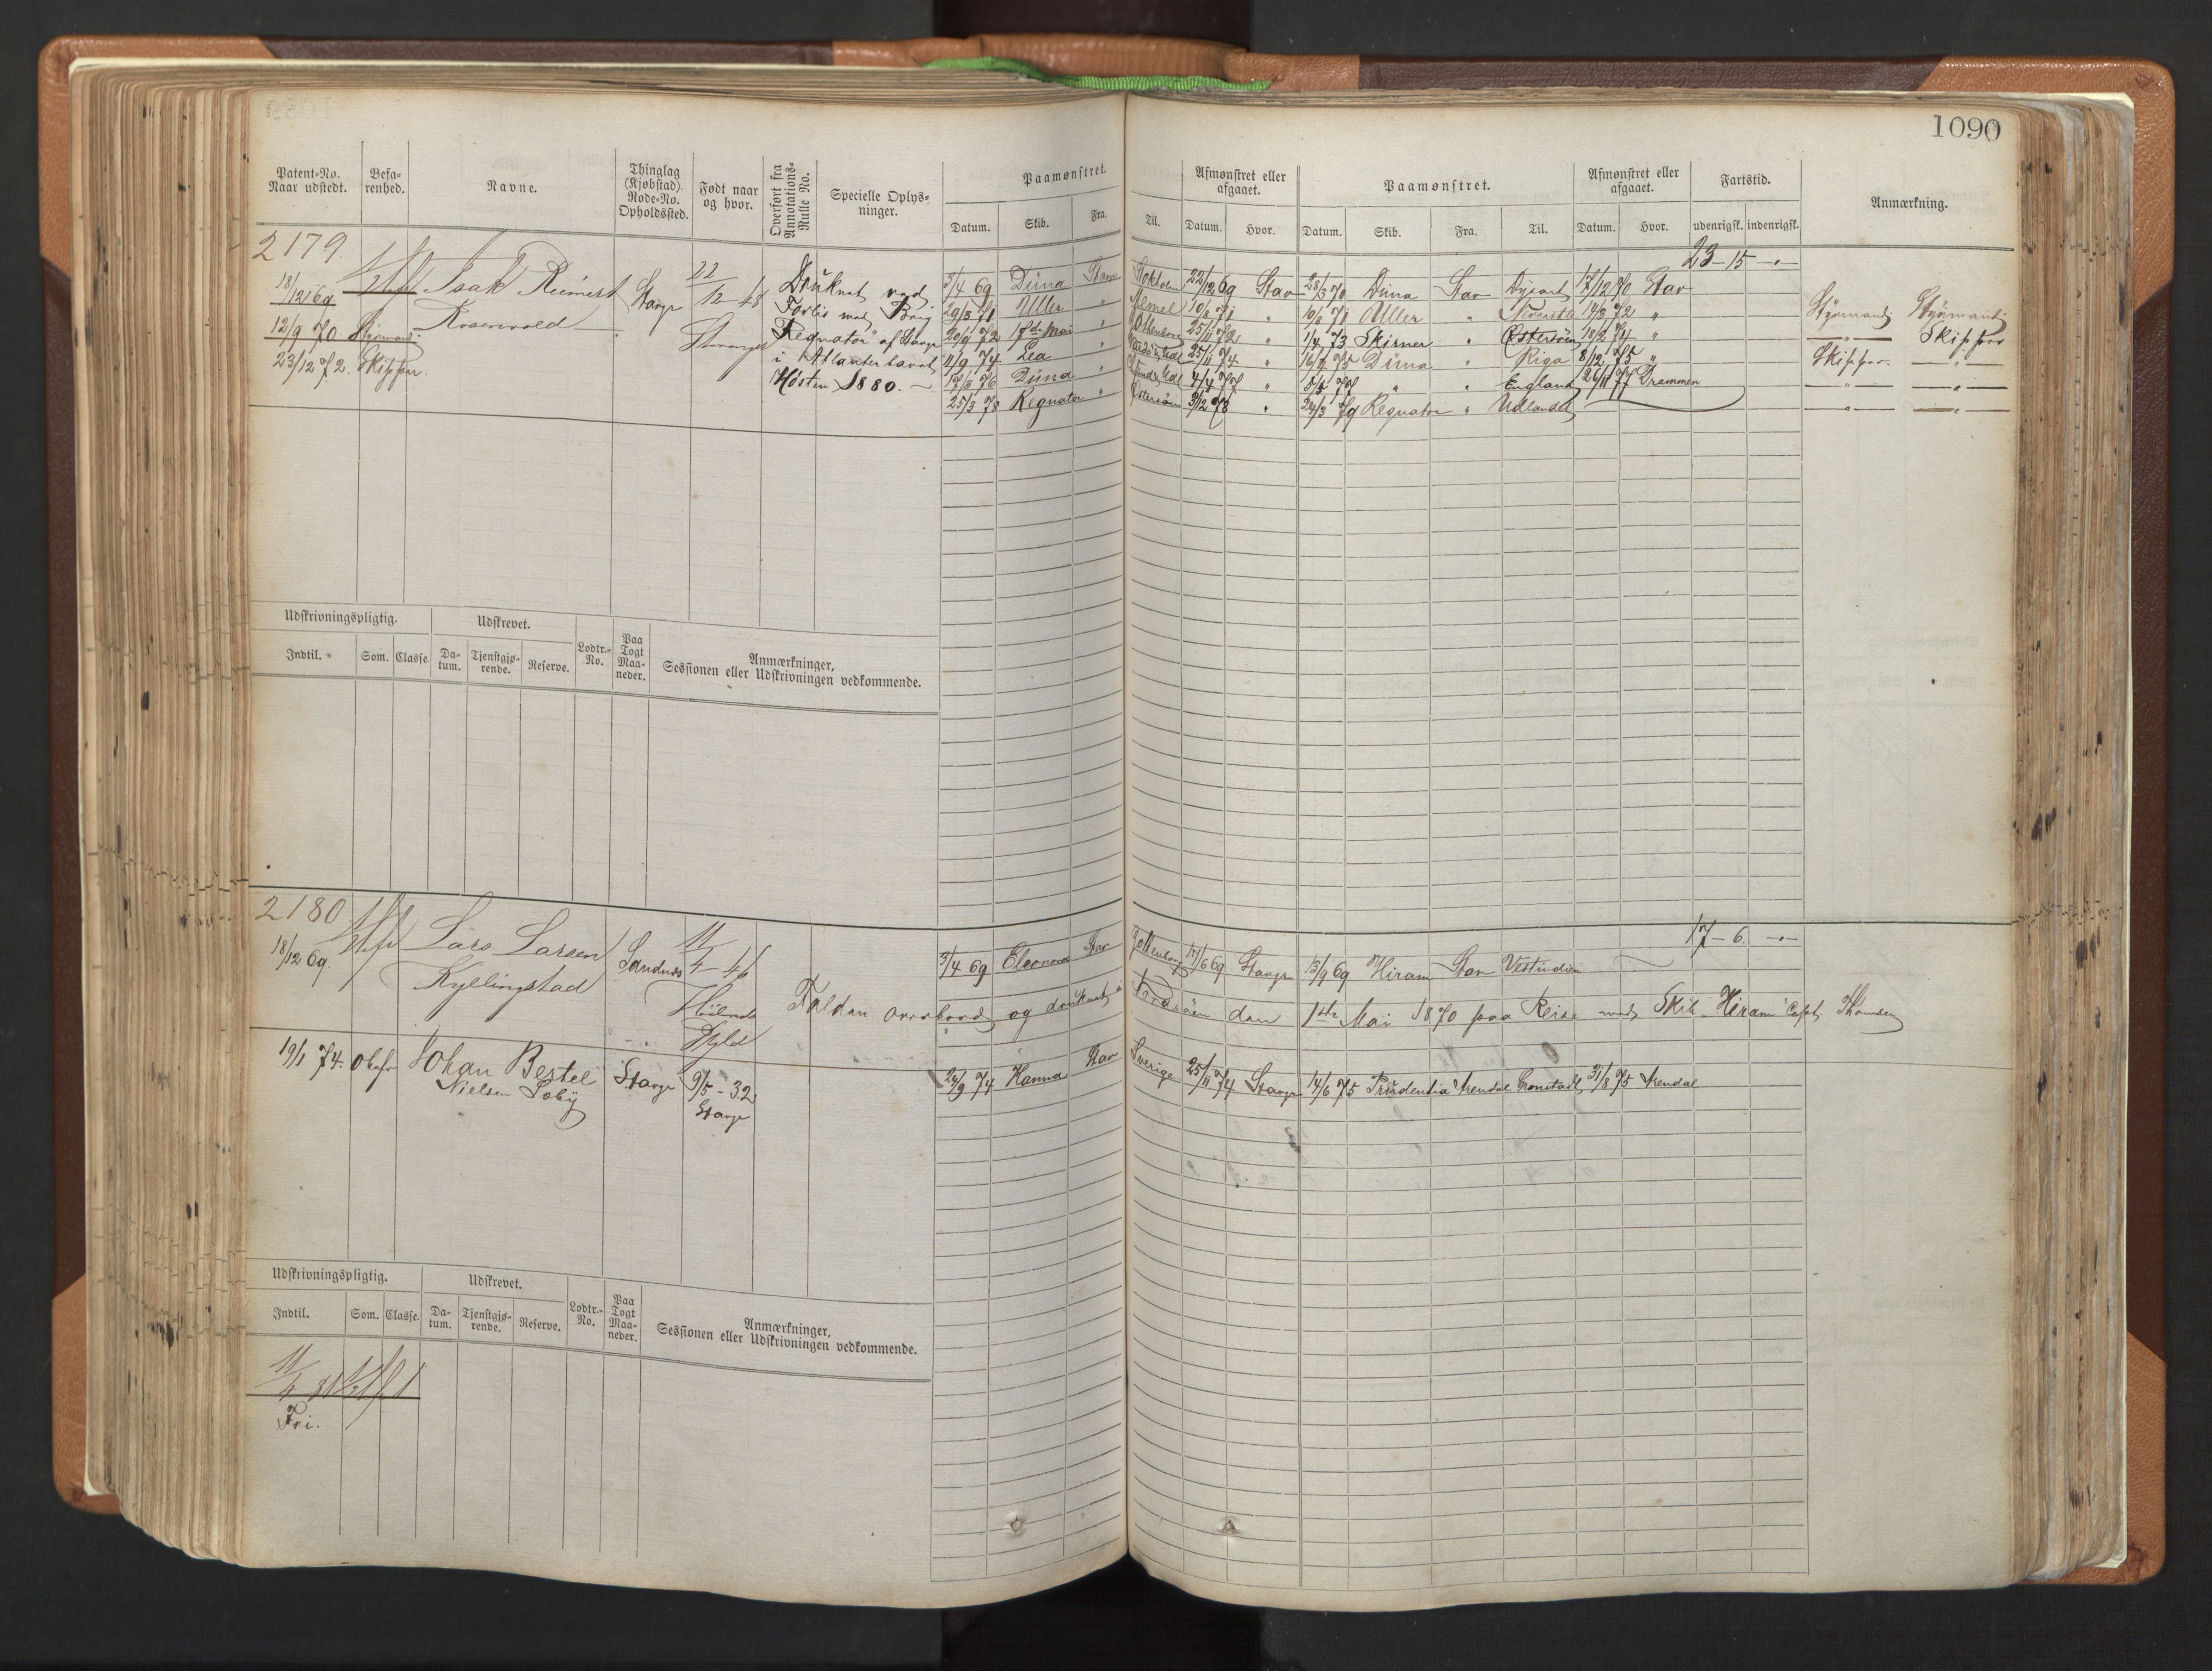 1090
Patent-No. Naar udstedt. Befarenhed. Navne. Thinglag (Kjøbstad) Rode-No. Opholdssted. Født naar og hvor. Overført fra Annotations-Rulle No. Specielle Oplysninger. Paamønstret. Afmønstret eller afgaaet. Paamønstret. Afmønstret eller afgaaet. Fartstid. Anmærkning.
Datum. Skib. Fra. Til. Datum. Hvor. Datum. Skib. Fra. Til. Datum. Hvor. udenrigsk. indenrigsk.
2179. 23-15-"-
18/12 69 Isak Reimert Stavgr 22/12 48 Druknet ved 3/4 69 Düna Stav Stokholm 22/12 69 Stav 28/3 70 Düna Stav Dysart 17/12 70 Stav
12/9 70 Styrmand Rosenvold Stavanger Forlis med Brig 29/3 71 Uller " Memel 10/8 71 10/8 71 Uller " 14/3 72 " Styrmand Styrmand
23/12 72. Skipper. "Regnator" af Stavgr 20/9 72 17de Mai " Gottenborg 25/11 72 " 1/4 73 Skirner " Østersöen 18/2 74 " " Skipper
i Atlanterhavet 11/9 74 Lea " 25/11 74 " 16/4 75 Düna " Riga 8/12 75 " Skipper. "
Høsten 1880. 12/8 76 Düna " 4/4 77 " 5/5 77 " " England 26/11 77 Drammen " "
25/3 78 Regnator " Østersöen 3/12 78 " 24/3 79 Regnator " Udlandet " "
Udskrivningspligtig. Udskrevet. Lodtr.-No. Paa Togt Maaneder. Anmærkninger, Sessionen eller Udskrivningen vedkommende.
Indtil. Som. Classe. Datum. Tjenstgjørende. Reserve.
2180 17-6.-"-
18/12 69. Lars Larsen Sandnes 11/4 46 3/4 69 Eleonora Stav Gottenborg 14/6 69 Stavgr 13/9 69 Hiram Stav Vestindien
Kyllingstad Høilands Falden overbord og druknet i Nordsöen den 1ste Mai 1870 paa Reise med Skib "Hiram" Capt. Thomsen
19/1 74. Obefr Johan Bestel Stavgr 9/5-32 24/9 74 Hanna Stav Sverige 25/11 74 Stavgr 14/6 75 Prudentia Arendal Cronstadt 31/8 75 Arendal
Nielsen Soby Stavgr
Udskrivningspligtig. Udskrevet. Lodtr.-No. Paa Togt Maaneder. Anmærkninger, Sessionen eller Udskrivningen vedkommende.
Indtil. Som. Classe. Datum. Tjenstgjørende. Reserve.
Fri.